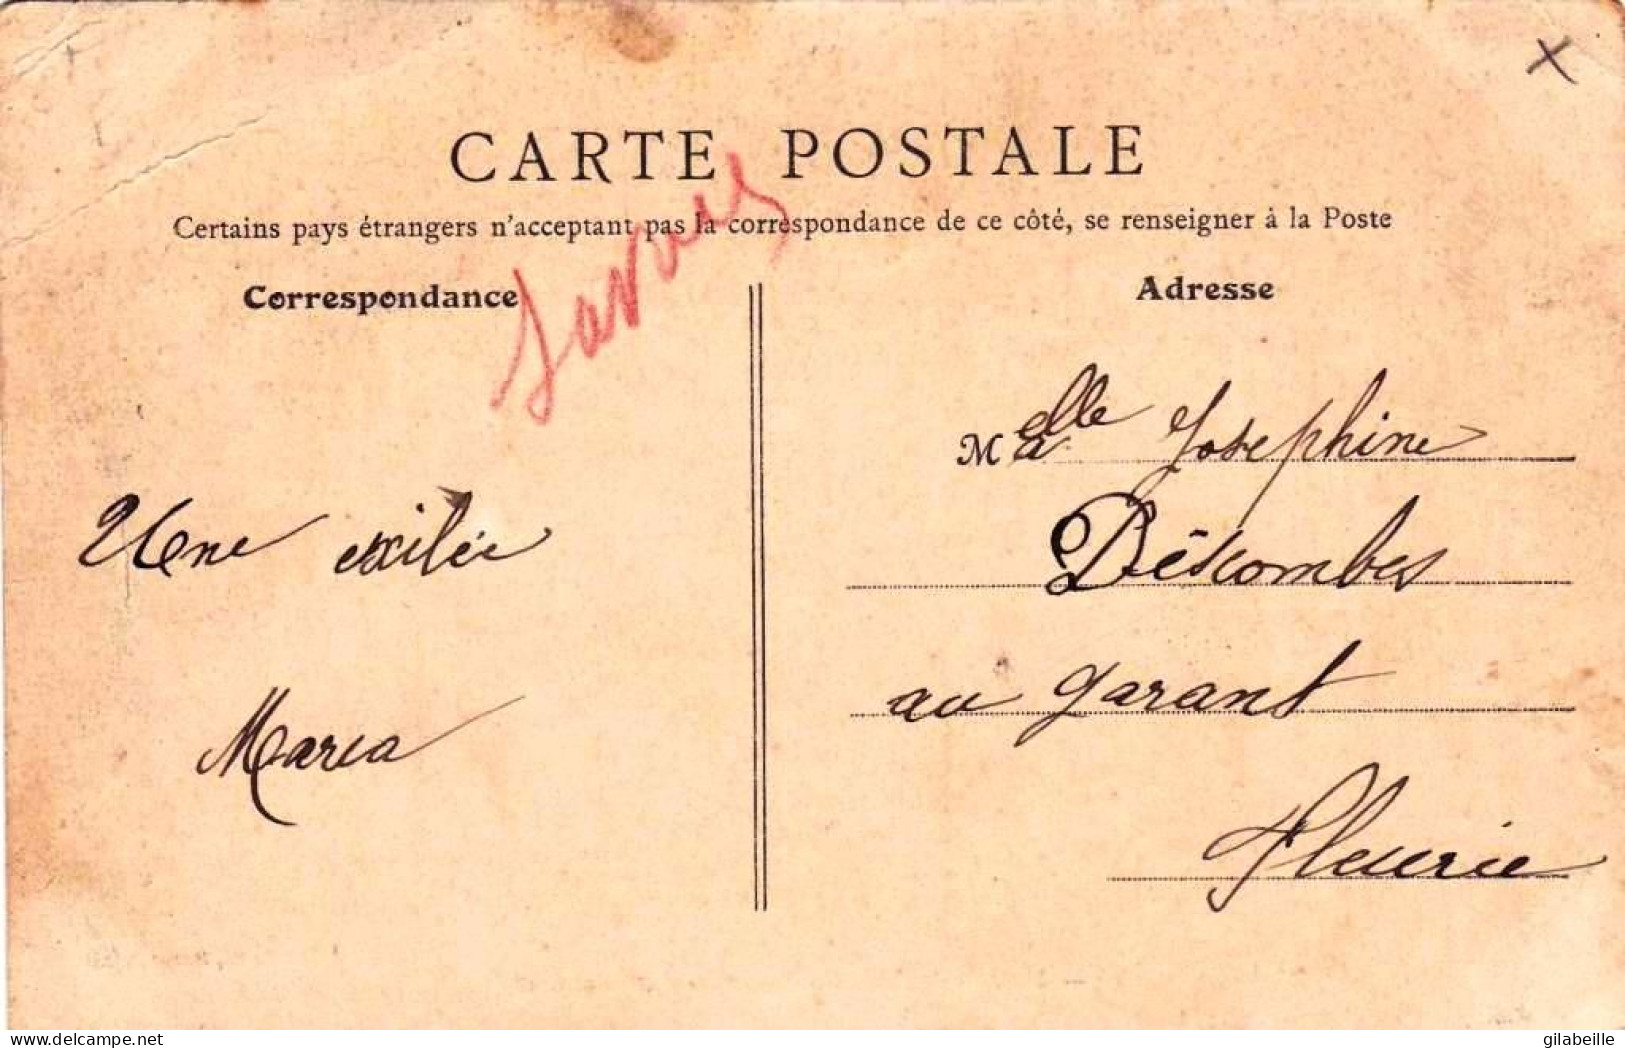 CARTE POSTALE
Certains pays étrangers n'acceptant pas la correspondance de ce côté, se renseigner à la Poste
Correspondance
Adresse
Une exilée
Maria
Melle Josephine
Déscombes
au garant
Fleurie
delcampe.net
gilabeille